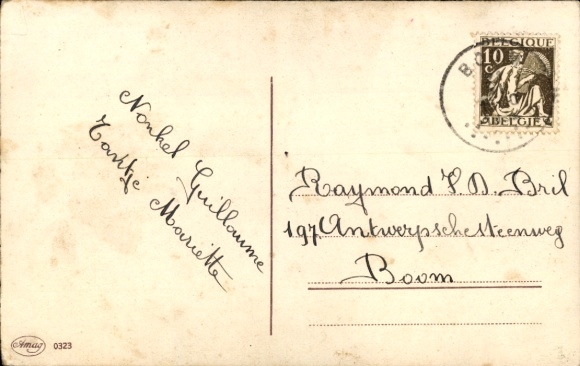 Nonkel Guillaume
Tantje Mariette
BELGIQUE
10
c
BELGIË
BO
Raymond V.D. Bril
197 Antwerpschesteenweg
Boom
Amag 0323